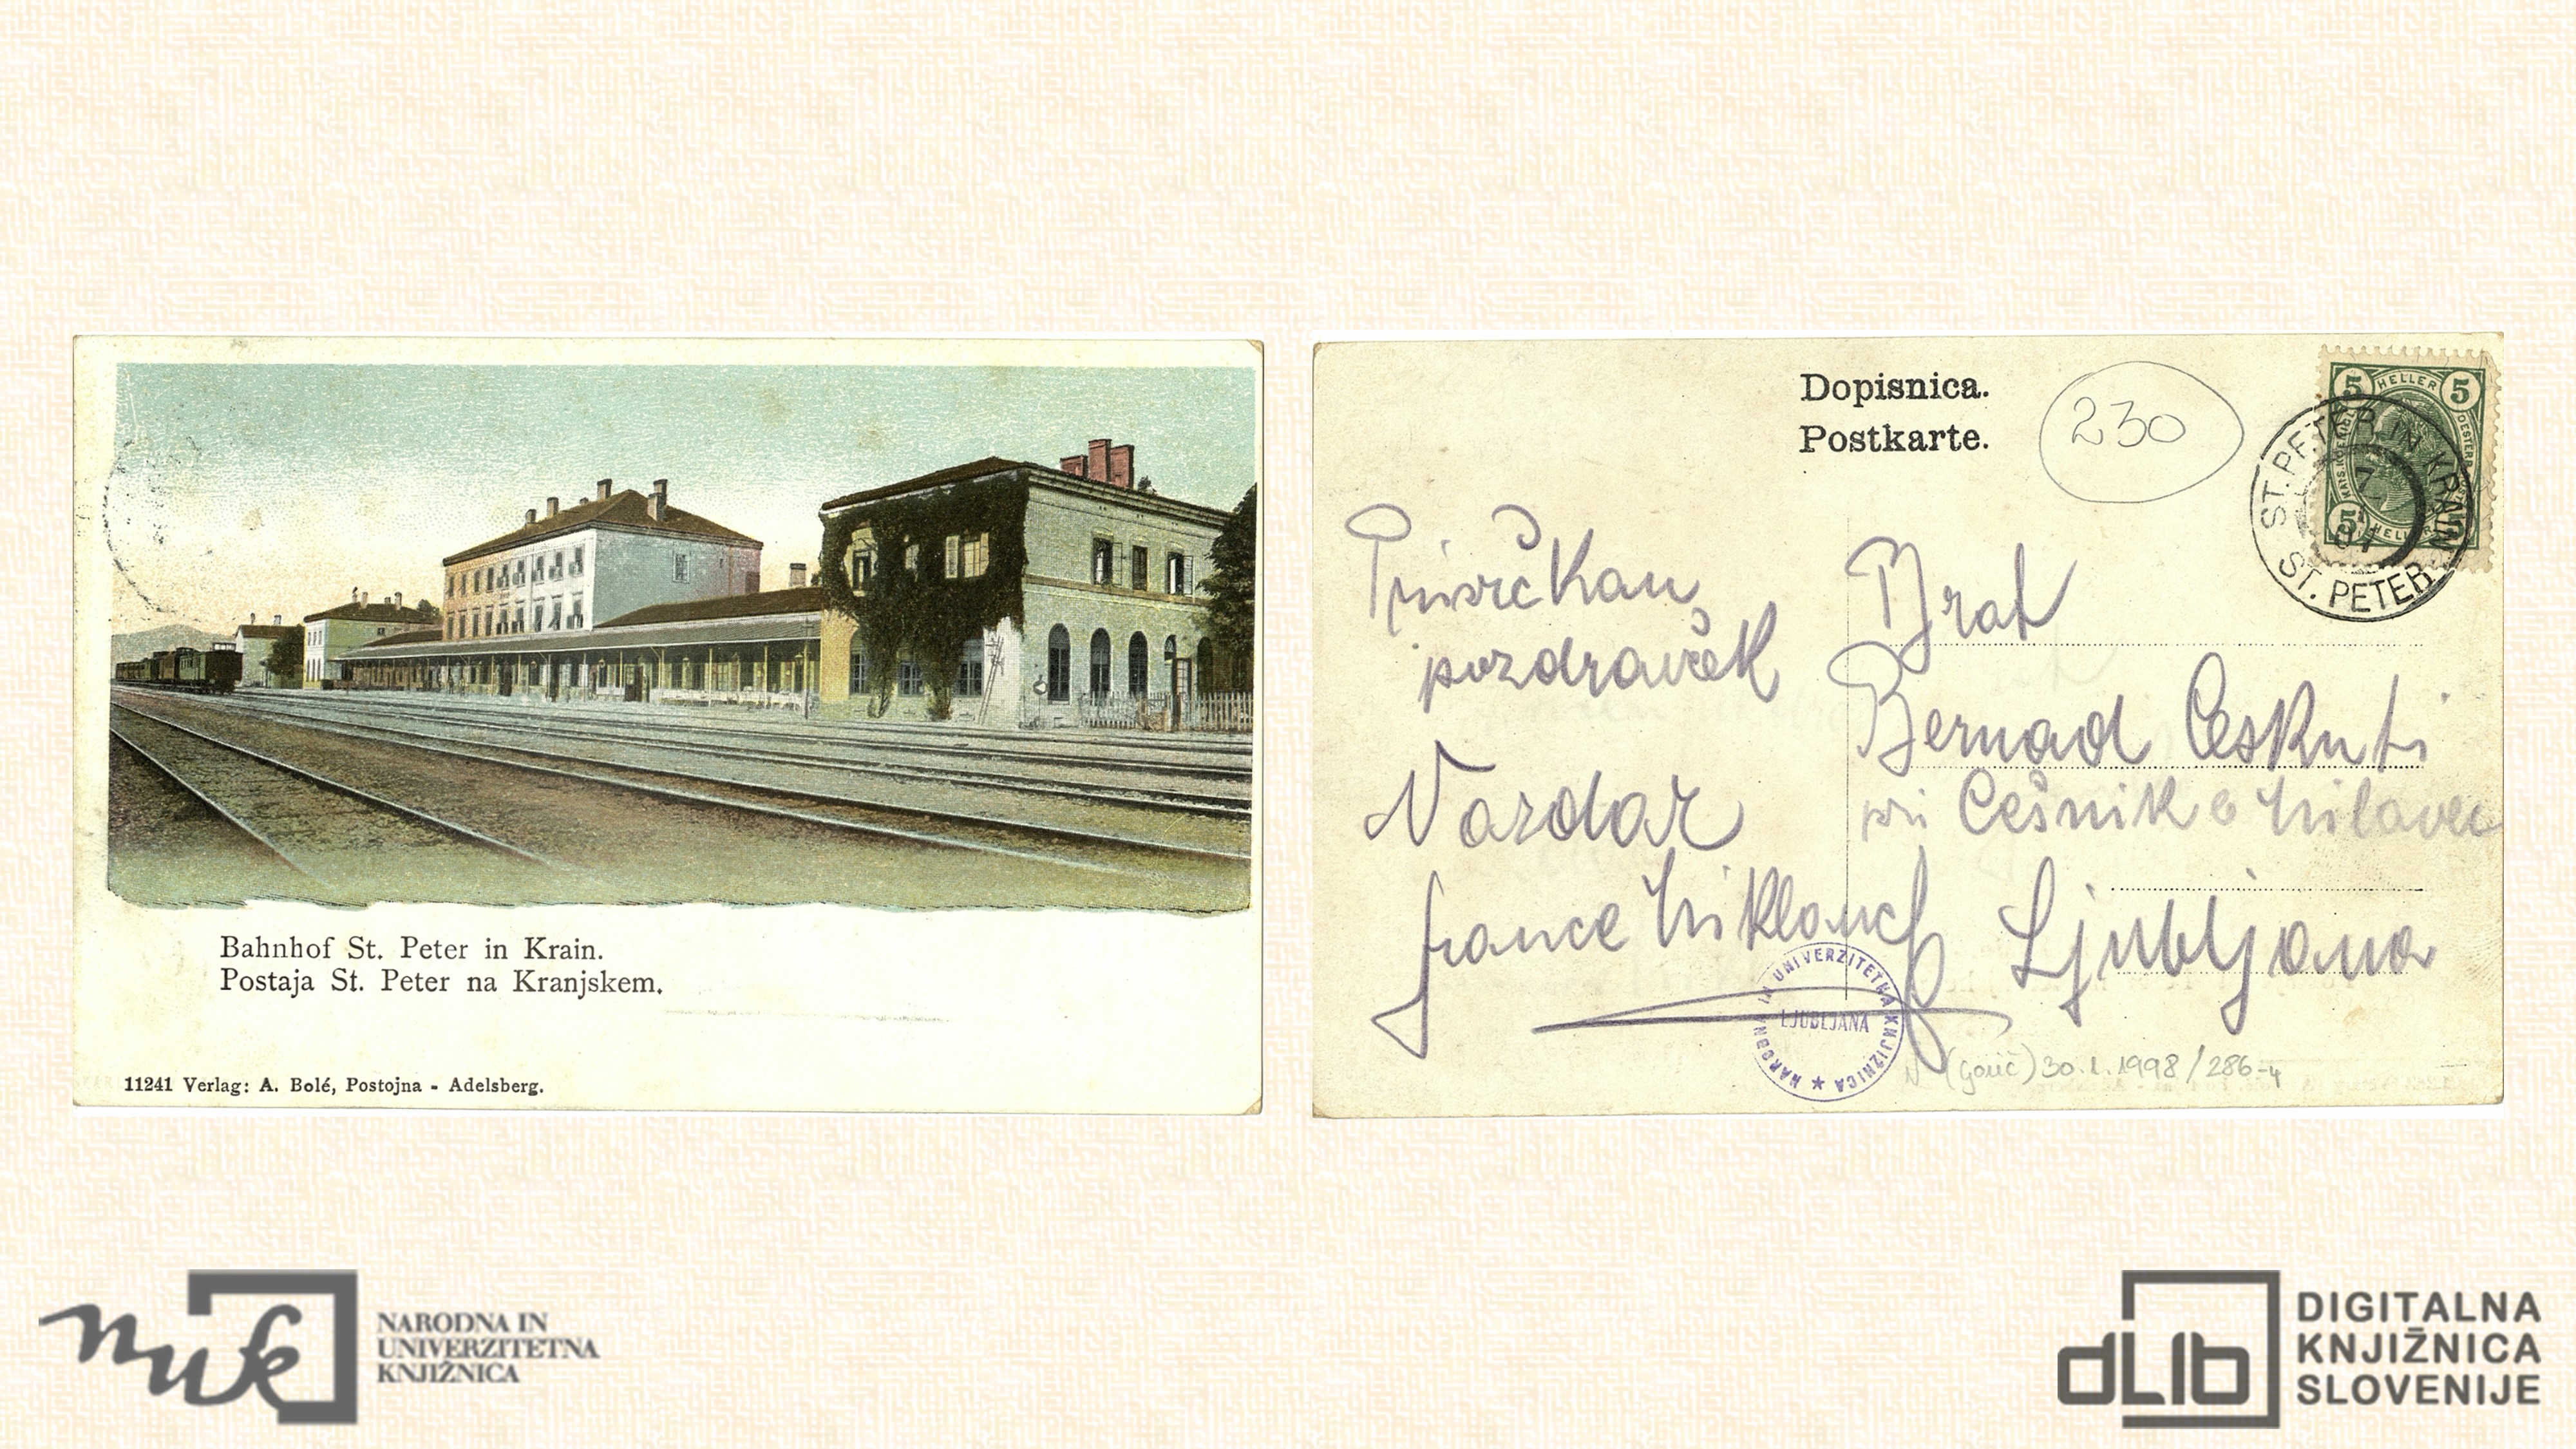 Bahnhof St. Peter in Krain.
Postaja St. Peter na Kranjskem.
11241 Verlag: A. Bolé, Postojna - Adelsberg.
Dopisnica.
Postkarte.
230
5 HELLER 5
5 HELLER
ST. PETER IN KRAIN
ST. PETER
pozdravček
Nazdar
france
Brat
Bernad
pri Češnik &
Ljubljana
NARODNA IN UNIVERZITETNA KNJIŽNICA ★
LJUBLJANA
30.1.1998/286-4
nuk
NARODNA IN
UNIVERZITETNA
KNJIŽNICA
dLib
DIGITALNA
KNJIŽNICA
SLOVENIJE